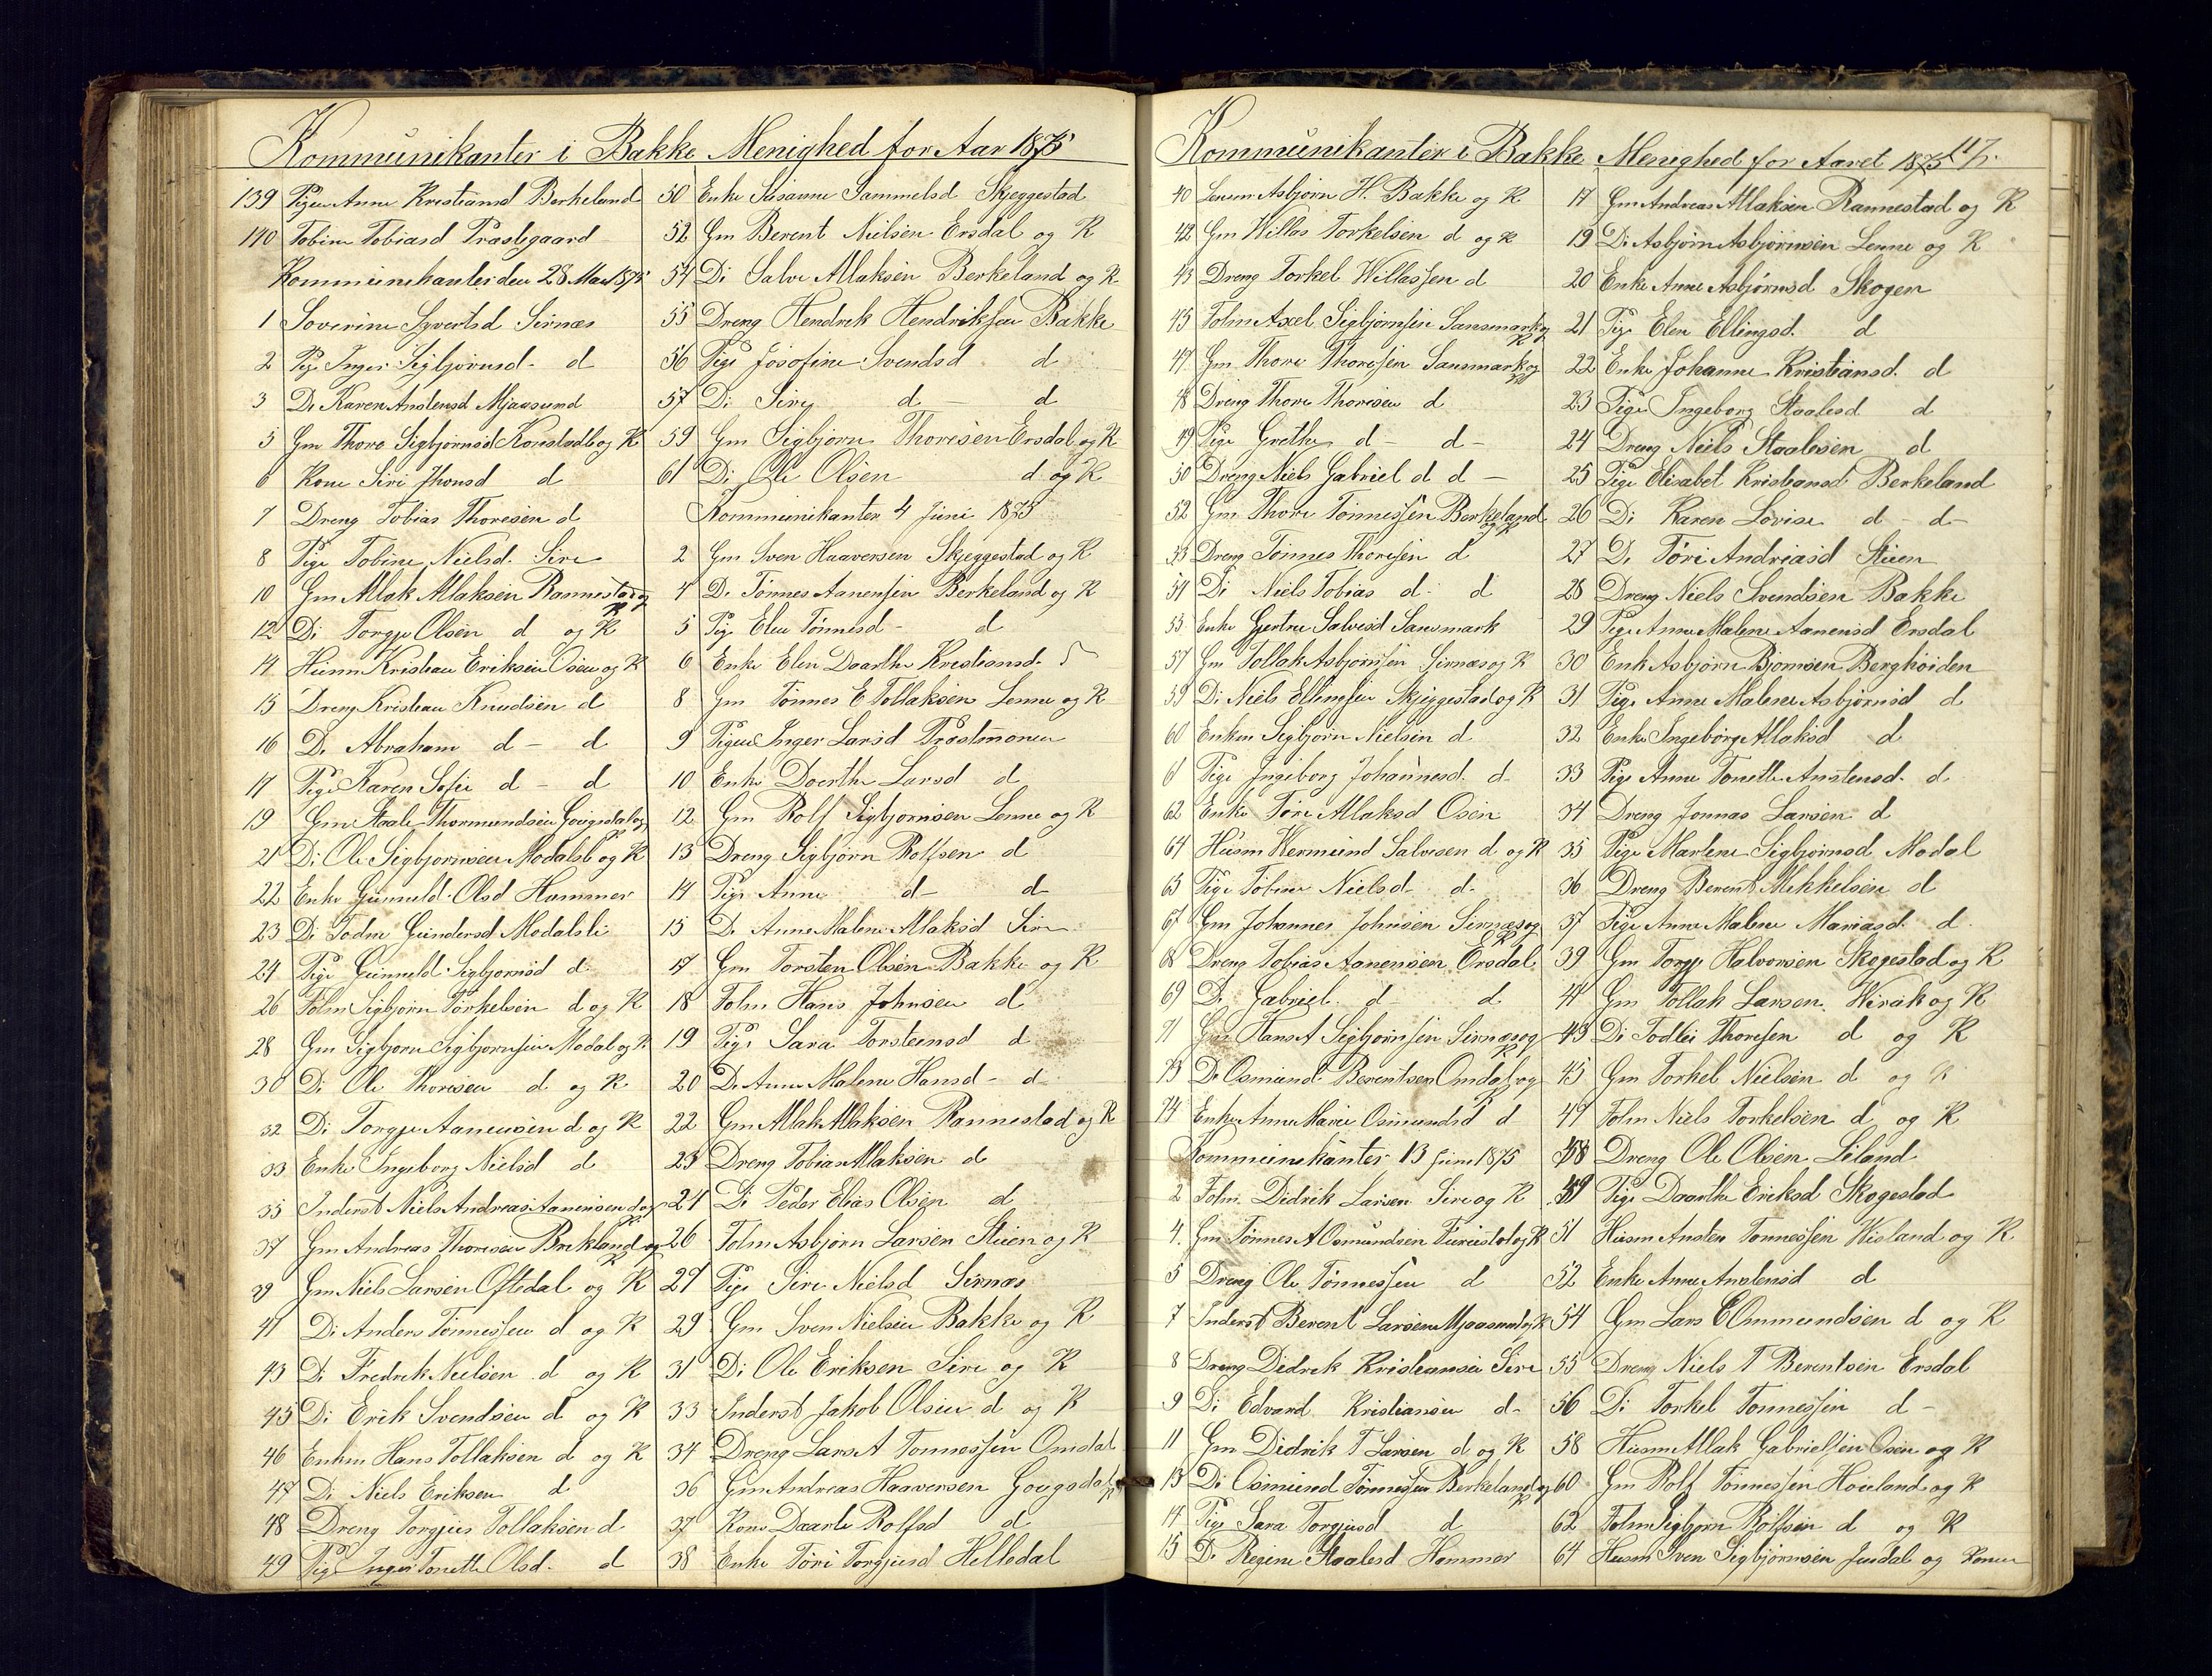 Kommunikanter i Bakke Menighed for Aar 1875
139 Pigen Anne Kristiansd Berkeland
140 Tobine Tobiasd Præstegaard
Kommunikanter den 28 Mai 1875
1 Soverine Syvertsd Sirnæs
2 Pig Inger Sigbjørnsd. d
3 Di Karen Anstensd Mjaasund
5 Gm Thore Sigbjørnsd og K
6 Kone Siri Jhonsd d
7 Dreng Tobias Thoresen d
8 Pige Tobine Nielsd. Sire
10 Gm Atlak Atlaksen Rannestad og K
12 Di Torgje Olsen d og K
14 Husm Kristian Eriksen Osen og K
15 Dreng Kristian Knudsen d
16 Di Abraham d – d
17 Pige Karen Sofie d – d
19 Gm Staale Thormundsen Gougsdal og K
21 Di Ole Sigbjørnsen Modalsli og K
22 Enke Gunneld Olsd Hammer
23 Di Todne Gundersd Modalsli
24 Pige Gunneld Sigbjørnsd d.
26 Folm Sigbjørn Torkelsen d og K
28 Gm Sigbjørn Sigbjørnsen Modal og K
30 Di Ole Thoresen d og K
32 Di Torgje Aanensen d og K
33 Enke Ingeborg Nielsd d
35 Inderst Niels Andreas Aanensen d og K
37 Gm Andreas Thoresen Birkland og K
39 Gm Niels Larsen Oftedal og K
41 Di Anders Tønnessen d og K
43 Di Fredrik Nielsen d og K
45 Di Erik Svendsen d og K
46 Enkm Hans Tollaksen d og K
47 Di Niels Eriksen d
48 Dreng Torgjus Tollaksen d
49 Pige Inger Tonette Olsd. d
50 Enke Susanne Sammelsd Skjeggestad
52 Gm Berent Nielsen Ersdal og K
54 Di Salve Atlaksen Berkeland og K
55 Dreng Hendrik Hendriksen Bakke
56 Pige Josofine Svendsd d
57 Di Siri d – d
59 Gm Sigbjørn Thoresen Ersdal og K
61 Di Ole Olsen d og K
Kommunikanter 4 Juni 1875
2 Gm Sven Haaversen Skjeggestad og K
4 Di Tønnes Aanensen Berkeland og K
5 Pig Elen Tønnesd – d
6 Enke Elen Daarthe Kristiansd.
8 Gm Tønnes E Tollaksen Lenne og K
9 Pigen Inger Larsd Præstmonen
10 Enke Doorthe Larsd d
12 Gm Rolf Sigbjørnsen Lenne og K
13 Dreng Sigbjørn Rolfsen d
14 Pige Anne d – d
15 Di Anne Malene Atlaksd Sire
17 Gm Torsten Olsen Bakke og K
18 Folm Hans Johnsen d
19 Pige Sara Torsteinsd d
20 Di Anne Malene Hansd – d
22 Gm Atlak Atlaksen Rannestad og K
23 Dreng Tobias Atlaksen d
24 Di Peder Elias Olsen d
26 Folm Asbjørn Larsen Stuen og K
27 Pige Siri Nielsd Sirnæs
29 Gm Sven Nielsen Bakke og K
31 Di Ole Eriksen Sire og K
33 Inderst Jakob Olsen d og K
34 Dreng Lars A Tønnessen Omdal
36 Gm Andreas Haaversen Gougsdal og K
37 Kone Daarte Rolfsd d
38 Enke Tøri Torgjusd Helledal
Kommunikanter i Bakke Menighed for Aaret 1875 117.
40 Lensm Asbjørn H. Bakke og K
42 Gm Willas Torkelsen d og K
43 Dreng Torkel Willassen d
45 Folm Axel Sigbjørnsen Sansmark og K
47 Gm Thore Thoresen Sansmark og K
48 Dreng Thore Thoresen d
49 Pige Grethe d – d –
50 Dreng Niels Gabriel d d –
52 Gm Thore Tønnessen Berkeland og K
53 Dreng Tønnes Thoresen d
54 Di Niels Tobias d. d
55 Enke Gjertrue Salvesd Sansmark
57 Gm Tollak Asbjørnsen Sirnæs og K
59 Di Niels Ellingsen Skjeggestad og K
60 Enkm Sigbjørn Nielsen d
61 Pige Ingeborg Johannesd. d
62 Enke Tøre Atlaksd Osen
64 Husm Wermund Salvesen d og K
65 Pige Tobine Nielsd d.
67 Gm Johannes Johnsen Sirnæs og K
68 Dreng Tobias Aanensen Ersdal
69 Di Gabriel d – d
71 Gm Hans A Sigbjørnsen Sirnæs og K
73 Di Osmund Berentsen Omdal og K
74 Enke Anne Marie Osmundsd d
Kommunikanter 13 Juni 1875
2 Folm Didrik Larsen Sire og K
4. Gm Tønnes A Osmundsen og K
5 Dreng Ole Tønnessen d
7 Inderst Berent Larsen Mjaasund og K
8 Dreng Didrik Kristiansen Sire
9 Di Edvard Kristiansen d –
11 Gm Didrik T Larsen d og K
13 Di Osmund Tønnessen Berkeland og K
14 Pige Sara Torgjusd d
15 Di Regine Staalesd Hammer
17 Gm Andreas Atlaksen Rannestad og K
19 Di Asbjørn Asbjørnsen Lenne og K
20 Enke Anne Asbjørnsd Skogen
21 Pige Elen Ellingsd. d
22 Enke Johanne Kristiansd. d
23 Pige Ingeborg Staalesd d
24 Dreng Niels Staalesen d
25 Pige Elisabet Kristiansd Berkeland
26 Di Karen Lovise d – d –
27 Di Töri Andreasd Stuen
28 Dreng Niels Svendsen Bakke
29 Pige Anne Malene Aanensd Ersdal
30 Enk Asbjørn Bjørnsen Berghøiden
31 Pige Anne Malene Asbjørnsd d
32 Enke Ingeborg Atlaksd d
33 Pige Anne Tonette Anstensd. d
34 Dreng Jonnas Larsen d
35 Pige Marlene Sigbjørnsd Modal
36 Dreng Berent Mekkelsen d
37 Pige Anne Malene Mariasd. d
39 Gm Torgje Halvorsen Skogestad og K
41 Gm Tollak Larsen Wirak og K
43 Di Todlei Thoresen d og K
45 Gm Torkel Nielsen d og K
47 Folm Niels Torkelsen d og K
48 Dreng Ole Olsen Liland
49 Pige Daarthe Eriksd Skogestad
51 Husm Ansten Tønnessen Wisland og K
52 Enke Anne Anstensd d
54 Gm Lars E Ommundsen d og K
55 Dreng Niels T Berentsen Ersdal
56 Di Torkel Tønnessen d –
58 Husm Atlak Gabrielsen Osen og K
60 Gm Rolf Tønnessen Houland og K
62 Folm Sigbjørn Rolfsen d og K
64 Husm Sven Sigbjørnsen Jusdal og Konen